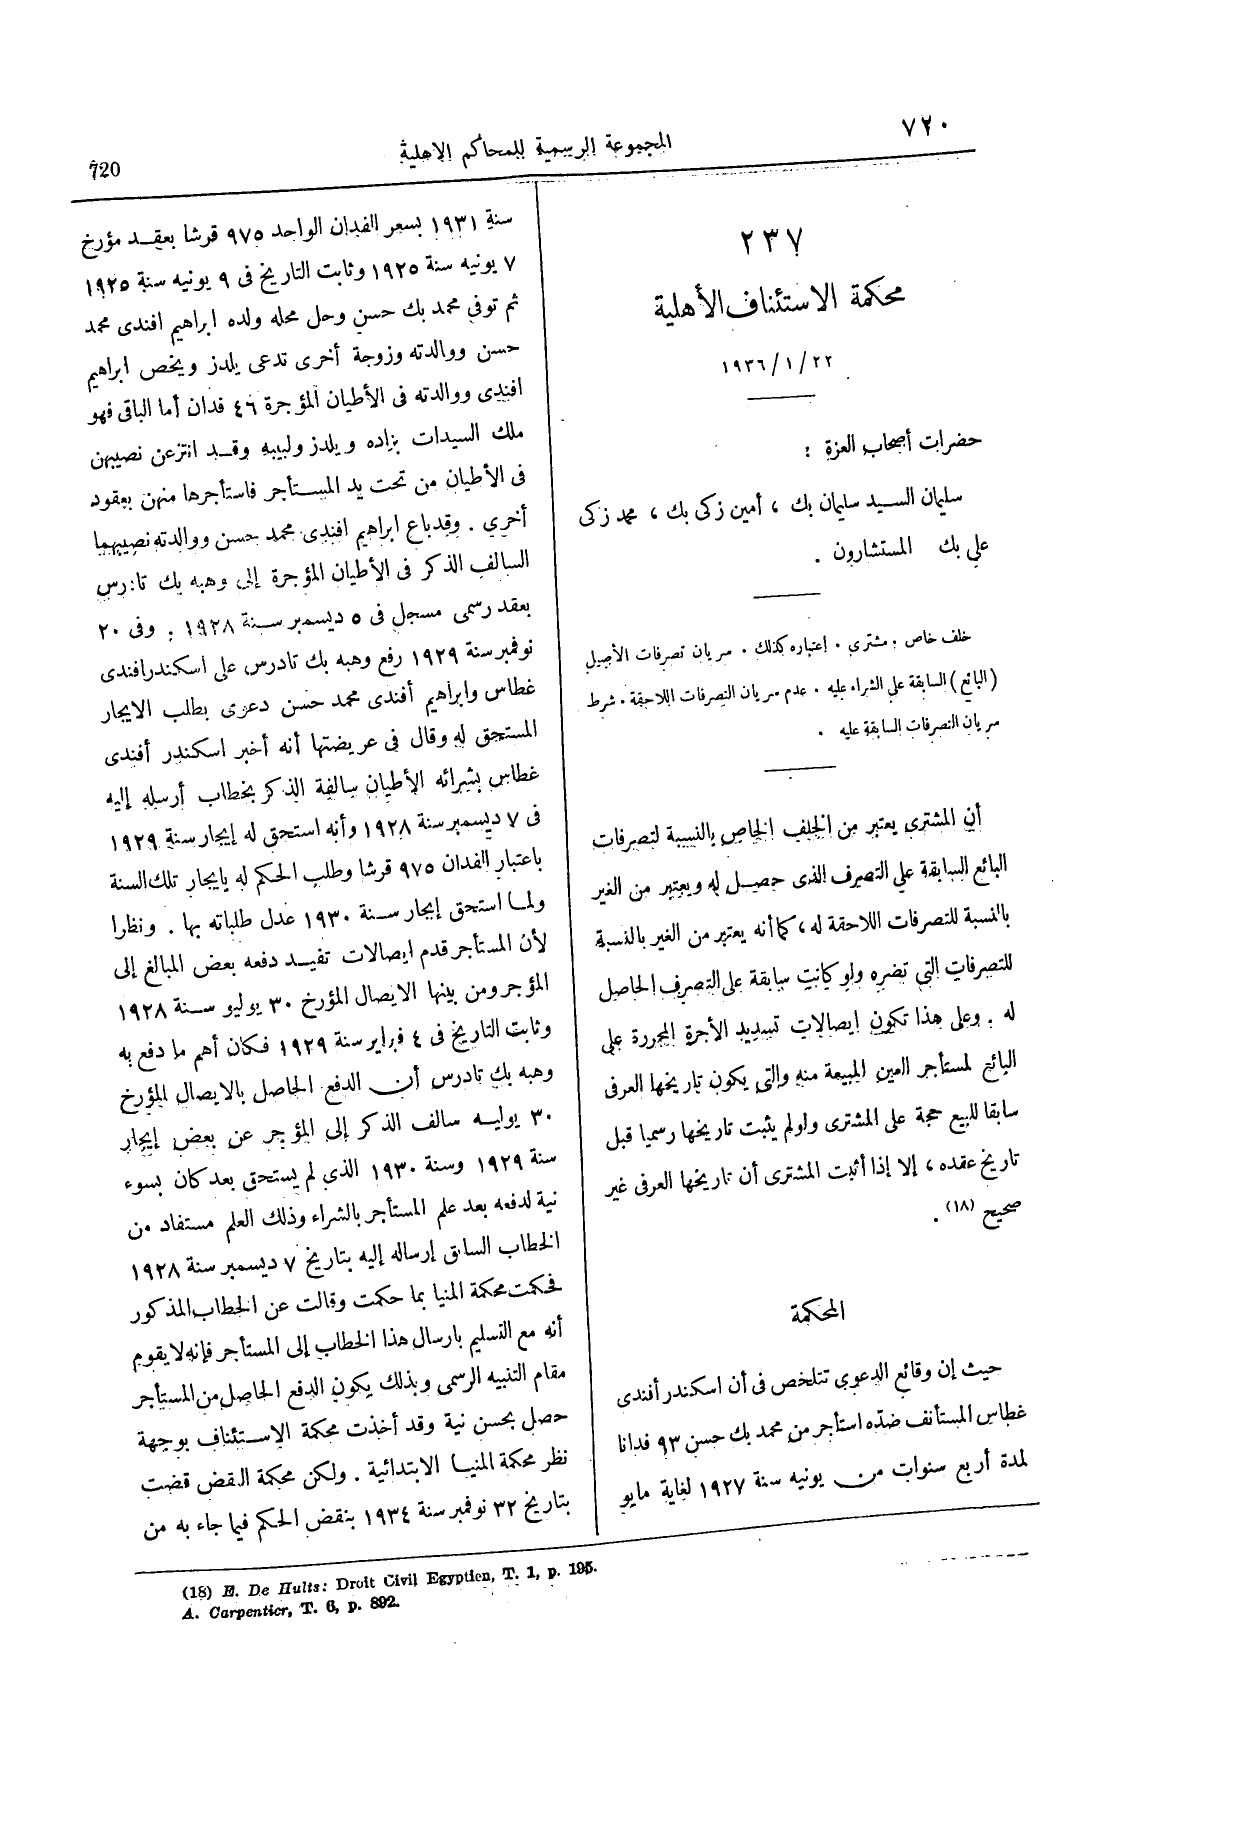 ٧٢٠
المجموعة الرسمية للمحاكم الاهلية
720
٢٣٧
محكمة الاستئناف الأهلية
١٩٣٦/١/٢٢
حضرات أصحاب العزة :
سليمان السيد سليمان بك ، أمين زكى بك ، محمد زكى
علي بك المستشارون .
خلف خاص . مشترى . اعتباره كذلك . سريان تصرفات الأصيل
(البائع) السابقة علي الشراء عليه . عدم سريان التصرفات اللاحقة . شرط
سريان التصرفات السابقة عليه .
أن المشترى يعتبر من الخلف الخاص بالنسبة لتصرفات
البائع السابقة علي التصرف الذى حصل له ويعتبر من الغير
بالنسبة للتصرفات اللاحقة له ، كما أنه يعتبر من الغير بالنسبة
للتصرفات التي تضره ولو كانت سابقة على التصرف الحاصل
له . وعلى هذا تكون ايصالات تسديد الأجرة المحررة على
البائع لمستأجر العين المبيعة منه والتي يكون تاريخها العرفى
سابقا للبيع حجة على المشترى ولولم يثبت تاريخها رسميا قبل
تاريخ عقده ، إلا إذا أثبت المشترى أن تاريخها العرفى غير
صحيح (١٨) .
المحكمة
حيث إن وقائع الدعوى تتلخص فى أن اسكندر أفندى
غطاس المستأنف ضده استأجر من محمد بك حسن ٩٣ فدانا
لمدة أربع سنوات من يونيه سنة ١٩٢٧ لغاية مايو
سنة ١٩٣١ بسعر الفدان الواحد ٩٧٥ قرشا بعقد مؤرخ
٧ يونيه سنة ١٩٢٥ وثابت التاريخ فى ٩ يونيه سنة ١٩٢٥
ثم توفي محمد بك حسن وحل محله ولده ابراهيم افندى محمد
حسن ووالدته وزوجة أخرى تدعى يلدز ويخص ابراهيم
افندى ووالدته فى الأطيان المؤجرة ٤٦ فدان أما الباقى فهو
ملك السيدات بزاده ويلدز ولبيبه وقد انتزعن نصيبهن
فى الأطيان من تحت يد المستأجر فاستأجرها منهن بعقود
أخري . وقدباع ابراهيم افندى محمد حسن ووالدته نصيبهما
السالف الذكر فى الأطيان المؤجرة إلى وهبه بك تادرس
بعقد رسمى مسجل فى ٥ ديسمبر سنة ١٩٢٨ . وفى ٢٠
نوفمبر سنة ١٩٢٩ رفع وهبه بك تادرس على اسكندرافندى
غطاس وابراهيم أفندى محمد حسن دعوى بطلب الايجار
المستحق له وقال فى عريضتها أنه أخبر اسكندر أفندى
غطاس بشرائه الأطيان سالفة الذكر بخطاب أرسله إليه
فى ٧ ديسمبر سنة ١٩٢٨ وأنه استحق له إيجار سنة ١٩٢٩
باعتبار الفدان ٩٧٥ قرشا وطلب الحكم له بايجار تلك السنة
ولما استحق إيجار سنة ١٩٣٠ عدل طلباته بها . ونظرا
لأن المستأجر قدم ايصالات تفيد دفعه بعض المبالغ إلى
المؤجر ومن بينها الايصال المؤرخ ٣٠ يوليو سنة ١٩٢٨
وثابت التاريخ فى ٤ فبراير سنة ١٩٢٩ فكان أهم ما دفع به
وهبه بك تادرس أن الدفع الحاصل بالايصال المؤرخ
٣٠ يوليه سالف الذكر إلى المؤجر عن بعض إيجار
سنة ١٩٢٩ وسنة ١٩٣٠ الذي لم يستحق بعد كان بسوء
نية لدفعه بعد علم المستأجر بالشراء وذلك العلم مستفاد من
الخطاب السابق إرساله إليه بتاريخ ٧ ديسمبر سنة ١٩٢٨
فحكمت محكمة المنيا بما حكمت وقالت عن الخطاب المذكور
أنه مع التسليم بارسال هذا الخطاب إلى المستأجر فإنه لا يقوم
مقام التنبيه الرسمى وبذلك يكون الدفع الحاصل من المستأجر
حصل بحسن نية وقد أخذت محكمة الاستئناف بوجهة
نظر محكمة المنيا الابتدائية . ولكن محكمة النقض قضت
بتاريخ ٣٢ نوفمبر سنة ١٩٣٤ بنقض الحكم فيما جاء به من
(18) E. De Hults: Droit Civil Egyptien, T. 1, p. 195.
A. Carpentier, T. 6, p. 892.